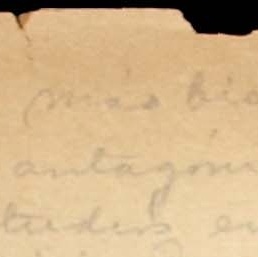 más bie
antagóni
tudios en